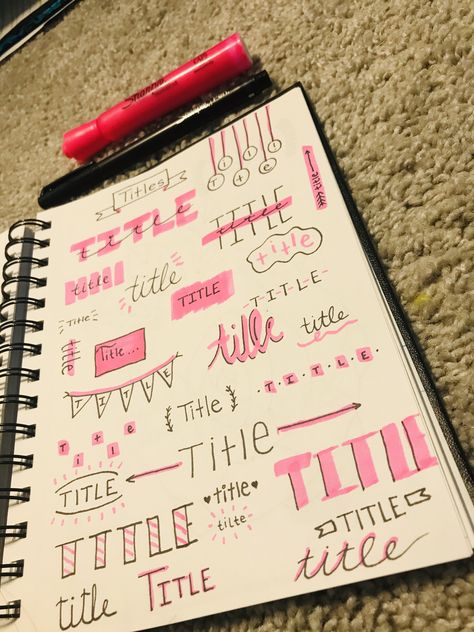 Sharpie
Titles
Title
TITLE
title
TITLE
title
title
title
title
title
TITLE
T-I-T-L-E-
Title
title
Title...
title
title
TITLE
Title
·T·I·T·L·E·
Title
Title
TITLE
♥title♥
TITLE
tilte
TITLE
TITLE
title
TITLE
title